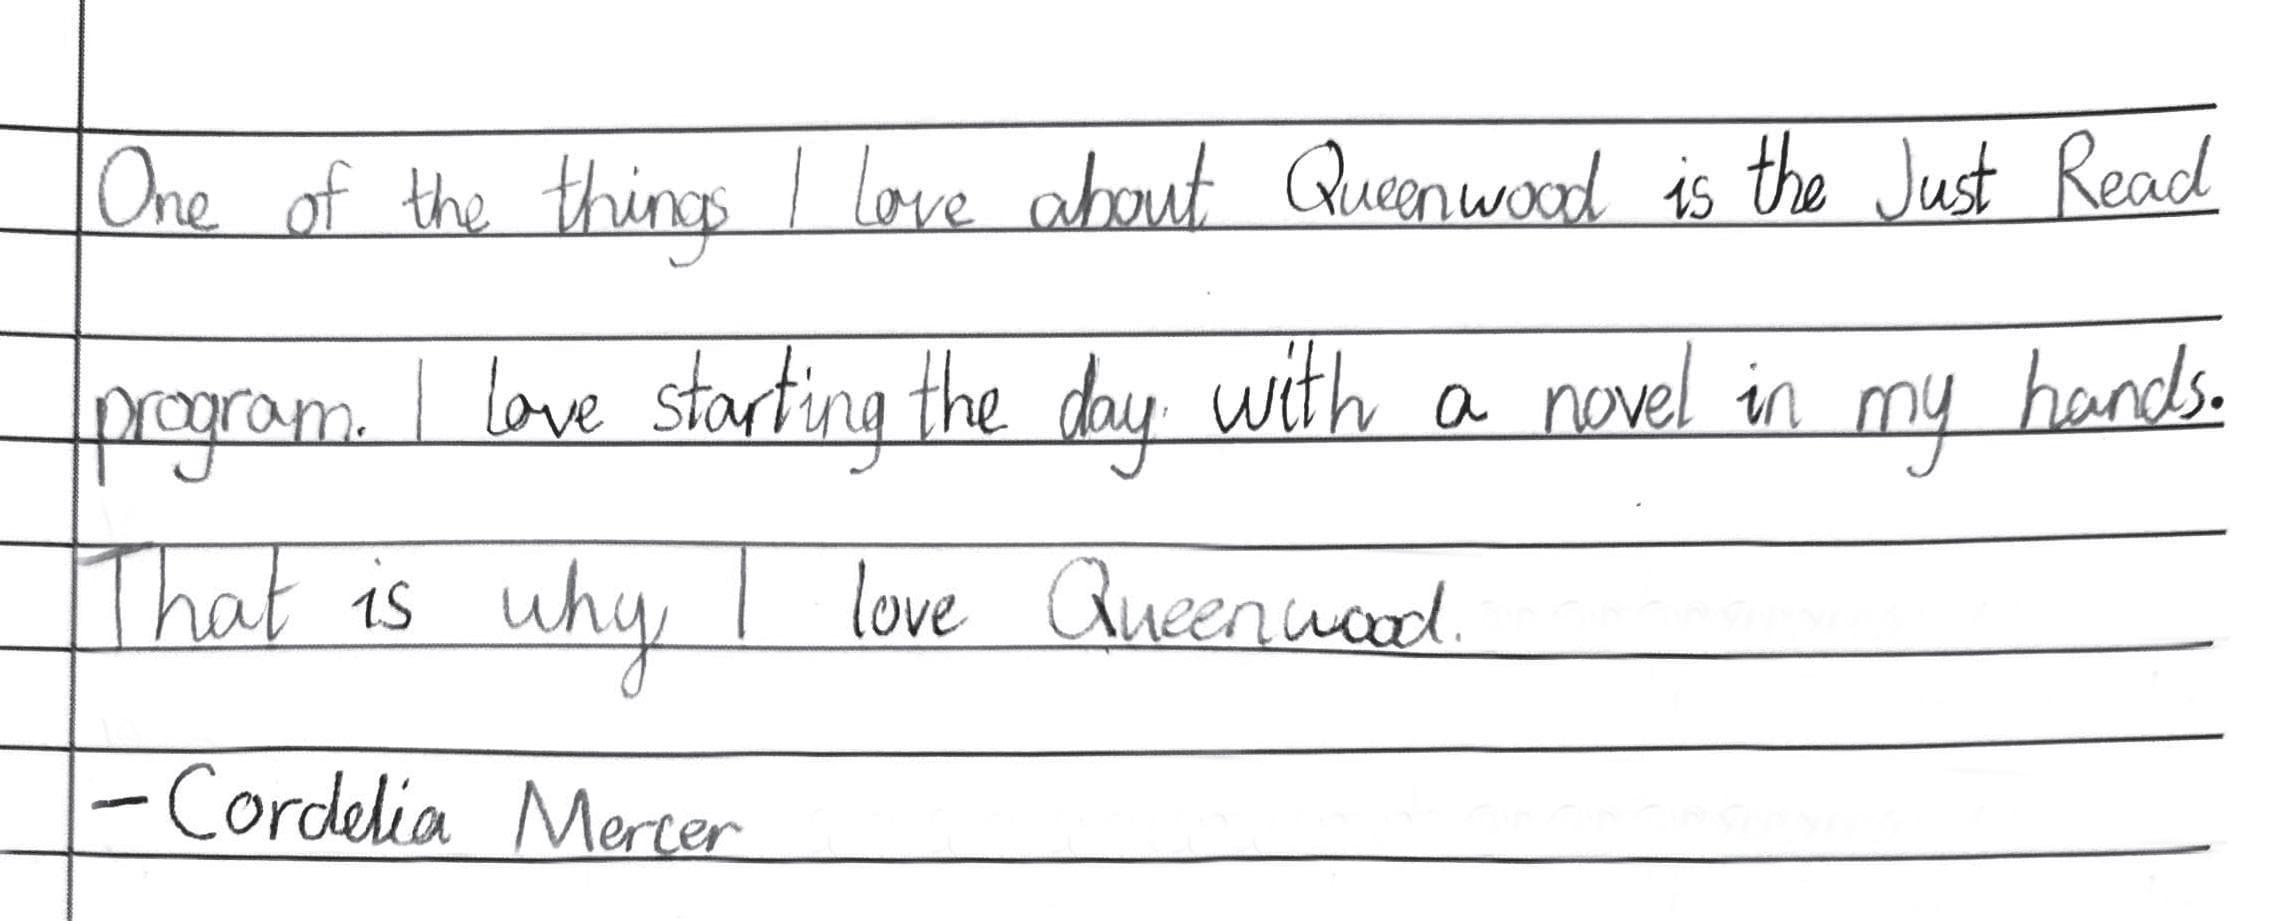 One of the things I love about Queenwood is the Just Read
program. I love starting the day with a novel in my hands.
That is why I love Queenwood.
- Cordelia Mercer